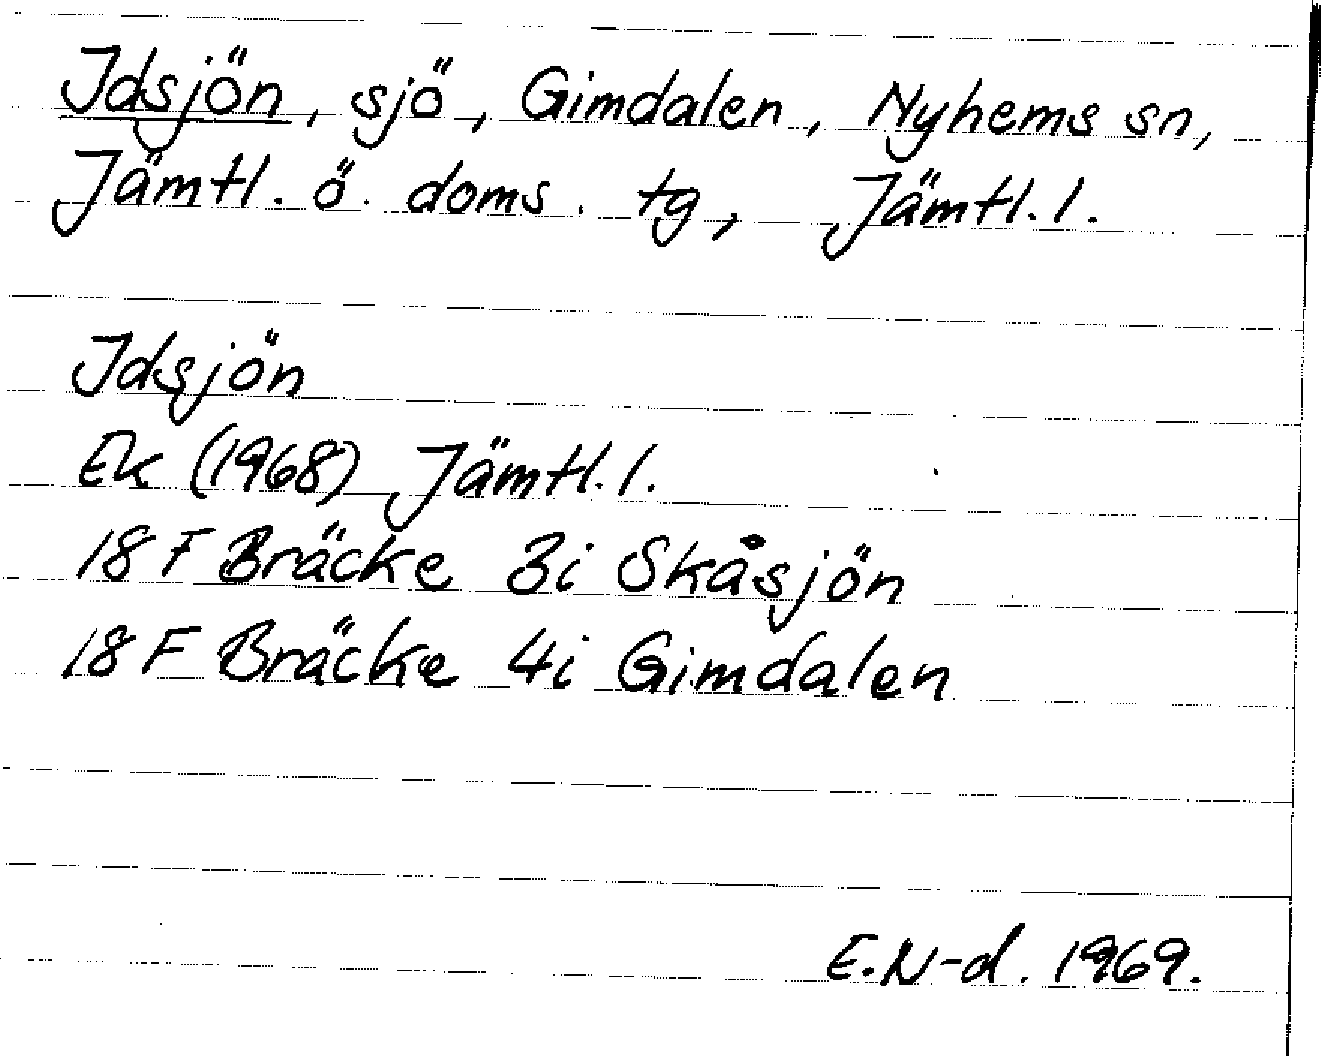 Idsjön, sjö, Gimdalen, Nyhems sn,
Jämtl. ö. doms. tg, Jämtl. l.
Idsjön
Ek (1968) Jämtl. l.
18 F Bräcke 3i Skåsjön
18 F Bräcke 4i Gimdalen
E.N-d. 1969.